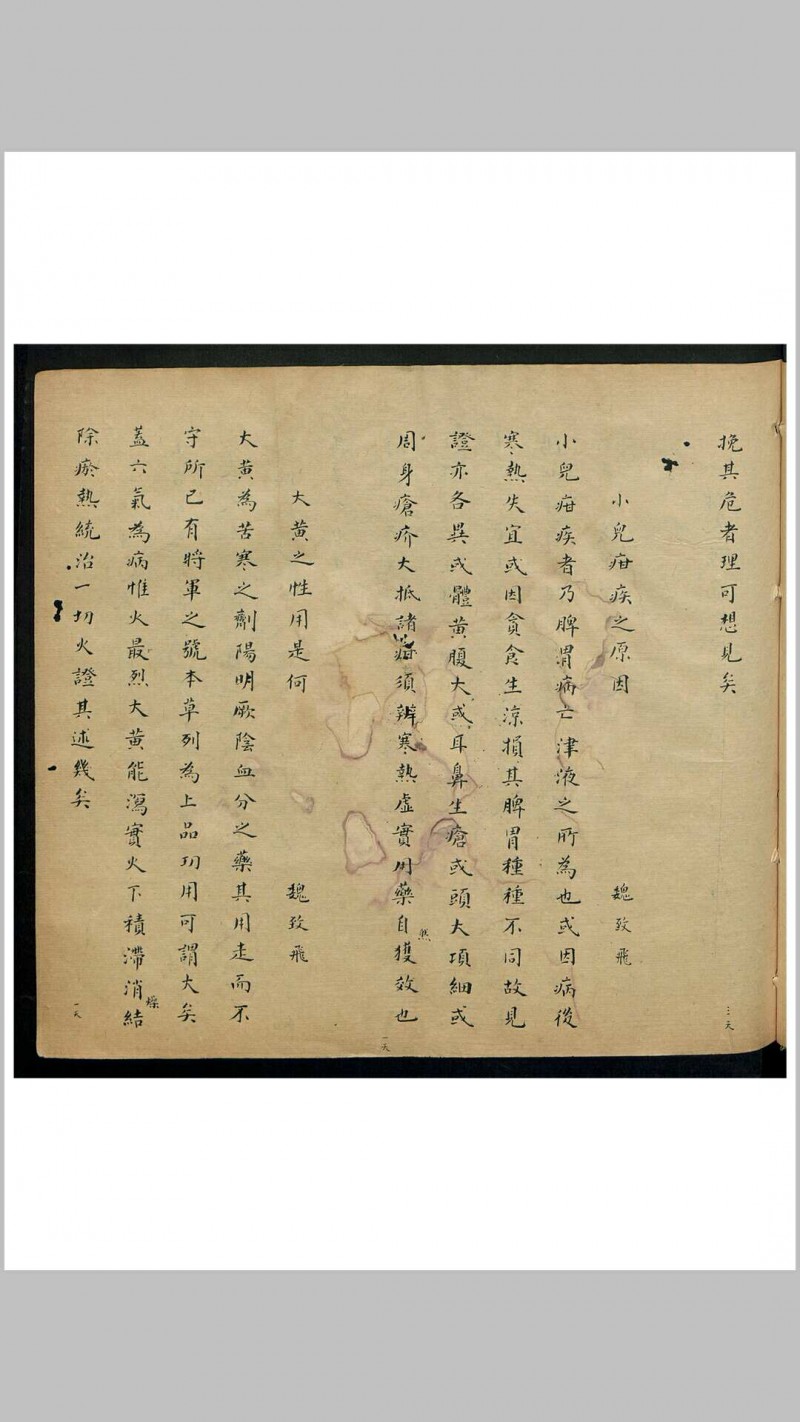 挽其危者理可想見矣
小兒疳疾之原因　魏致飛
小兒疳疾者乃脾胃病亡津液之所為也或因病後
寒熱失宜或因貪食生涼損其脾胃種種不同故見
證亦各異或體黃腹大或耳鼻生瘡或頭大項細或
周身瘡疥大抵諸疳須辨寒熱虛實用藥自然獲效也
大黃之性用是何　魏致飛
大黃為苦寒之劑陽明厥陰血分之藥其用走而不
守所已有將軍之號本草列為上品功用可謂大矣
蓋六氣為病惟火最烈大黃能瀉實火下積滯消燥結
除瘀熱統治一切火證其述幾矣